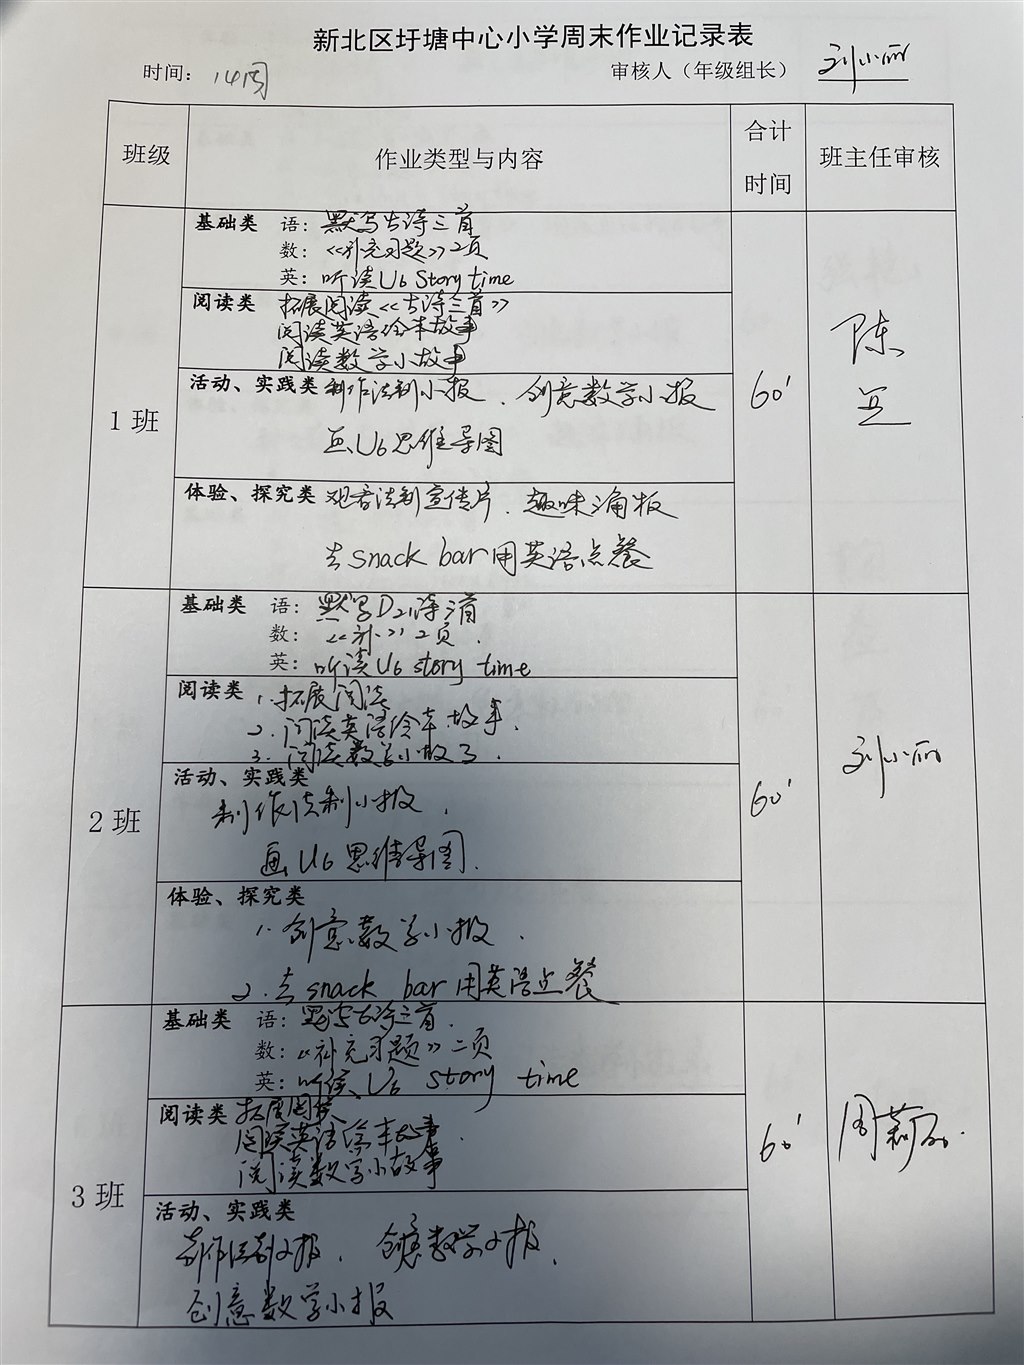 新北区圩塘中心小学周末作业记录表
时间：14周 审核人（年级组长） 刘小丽
班级 作业类型与内容 合计时间 班主任审核
1班
基础类 语：默写古诗三首
数：《补充习题》2页
英：听读U6 Story time
阅读类 拓展阅读《古诗三首》
阅读英语绘本故事
阅读数学小故事
活动、实践类 制作法制小报、创意数学小报
画U6思维导图
体验、探究类 观看法制宣传片、趣味滴板
去snack bar用英语点餐
60' 陈
2班
基础类 语：默写D21诗三首
数：《补》2页.
英：听读U6 story time
阅读类 1.拓展阅读
2.阅读英语绘本故事.
3.阅读数学小故事.
活动、实践类
制作法制小报.
画U6思维导图.
体验、探究类
1.创意数学小报.
2.去snack bar用英语点餐
60' 刘小丽
3班
基础类 语：默写古诗三首.
数：《补充习题》二页
英：听读U6 story time
阅读类 拓展阅读
阅读英语绘本故事.
阅读数学小故事
活动、实践类
制作法制小报. 创意数学小报.
创意数学小报
60' 周莉